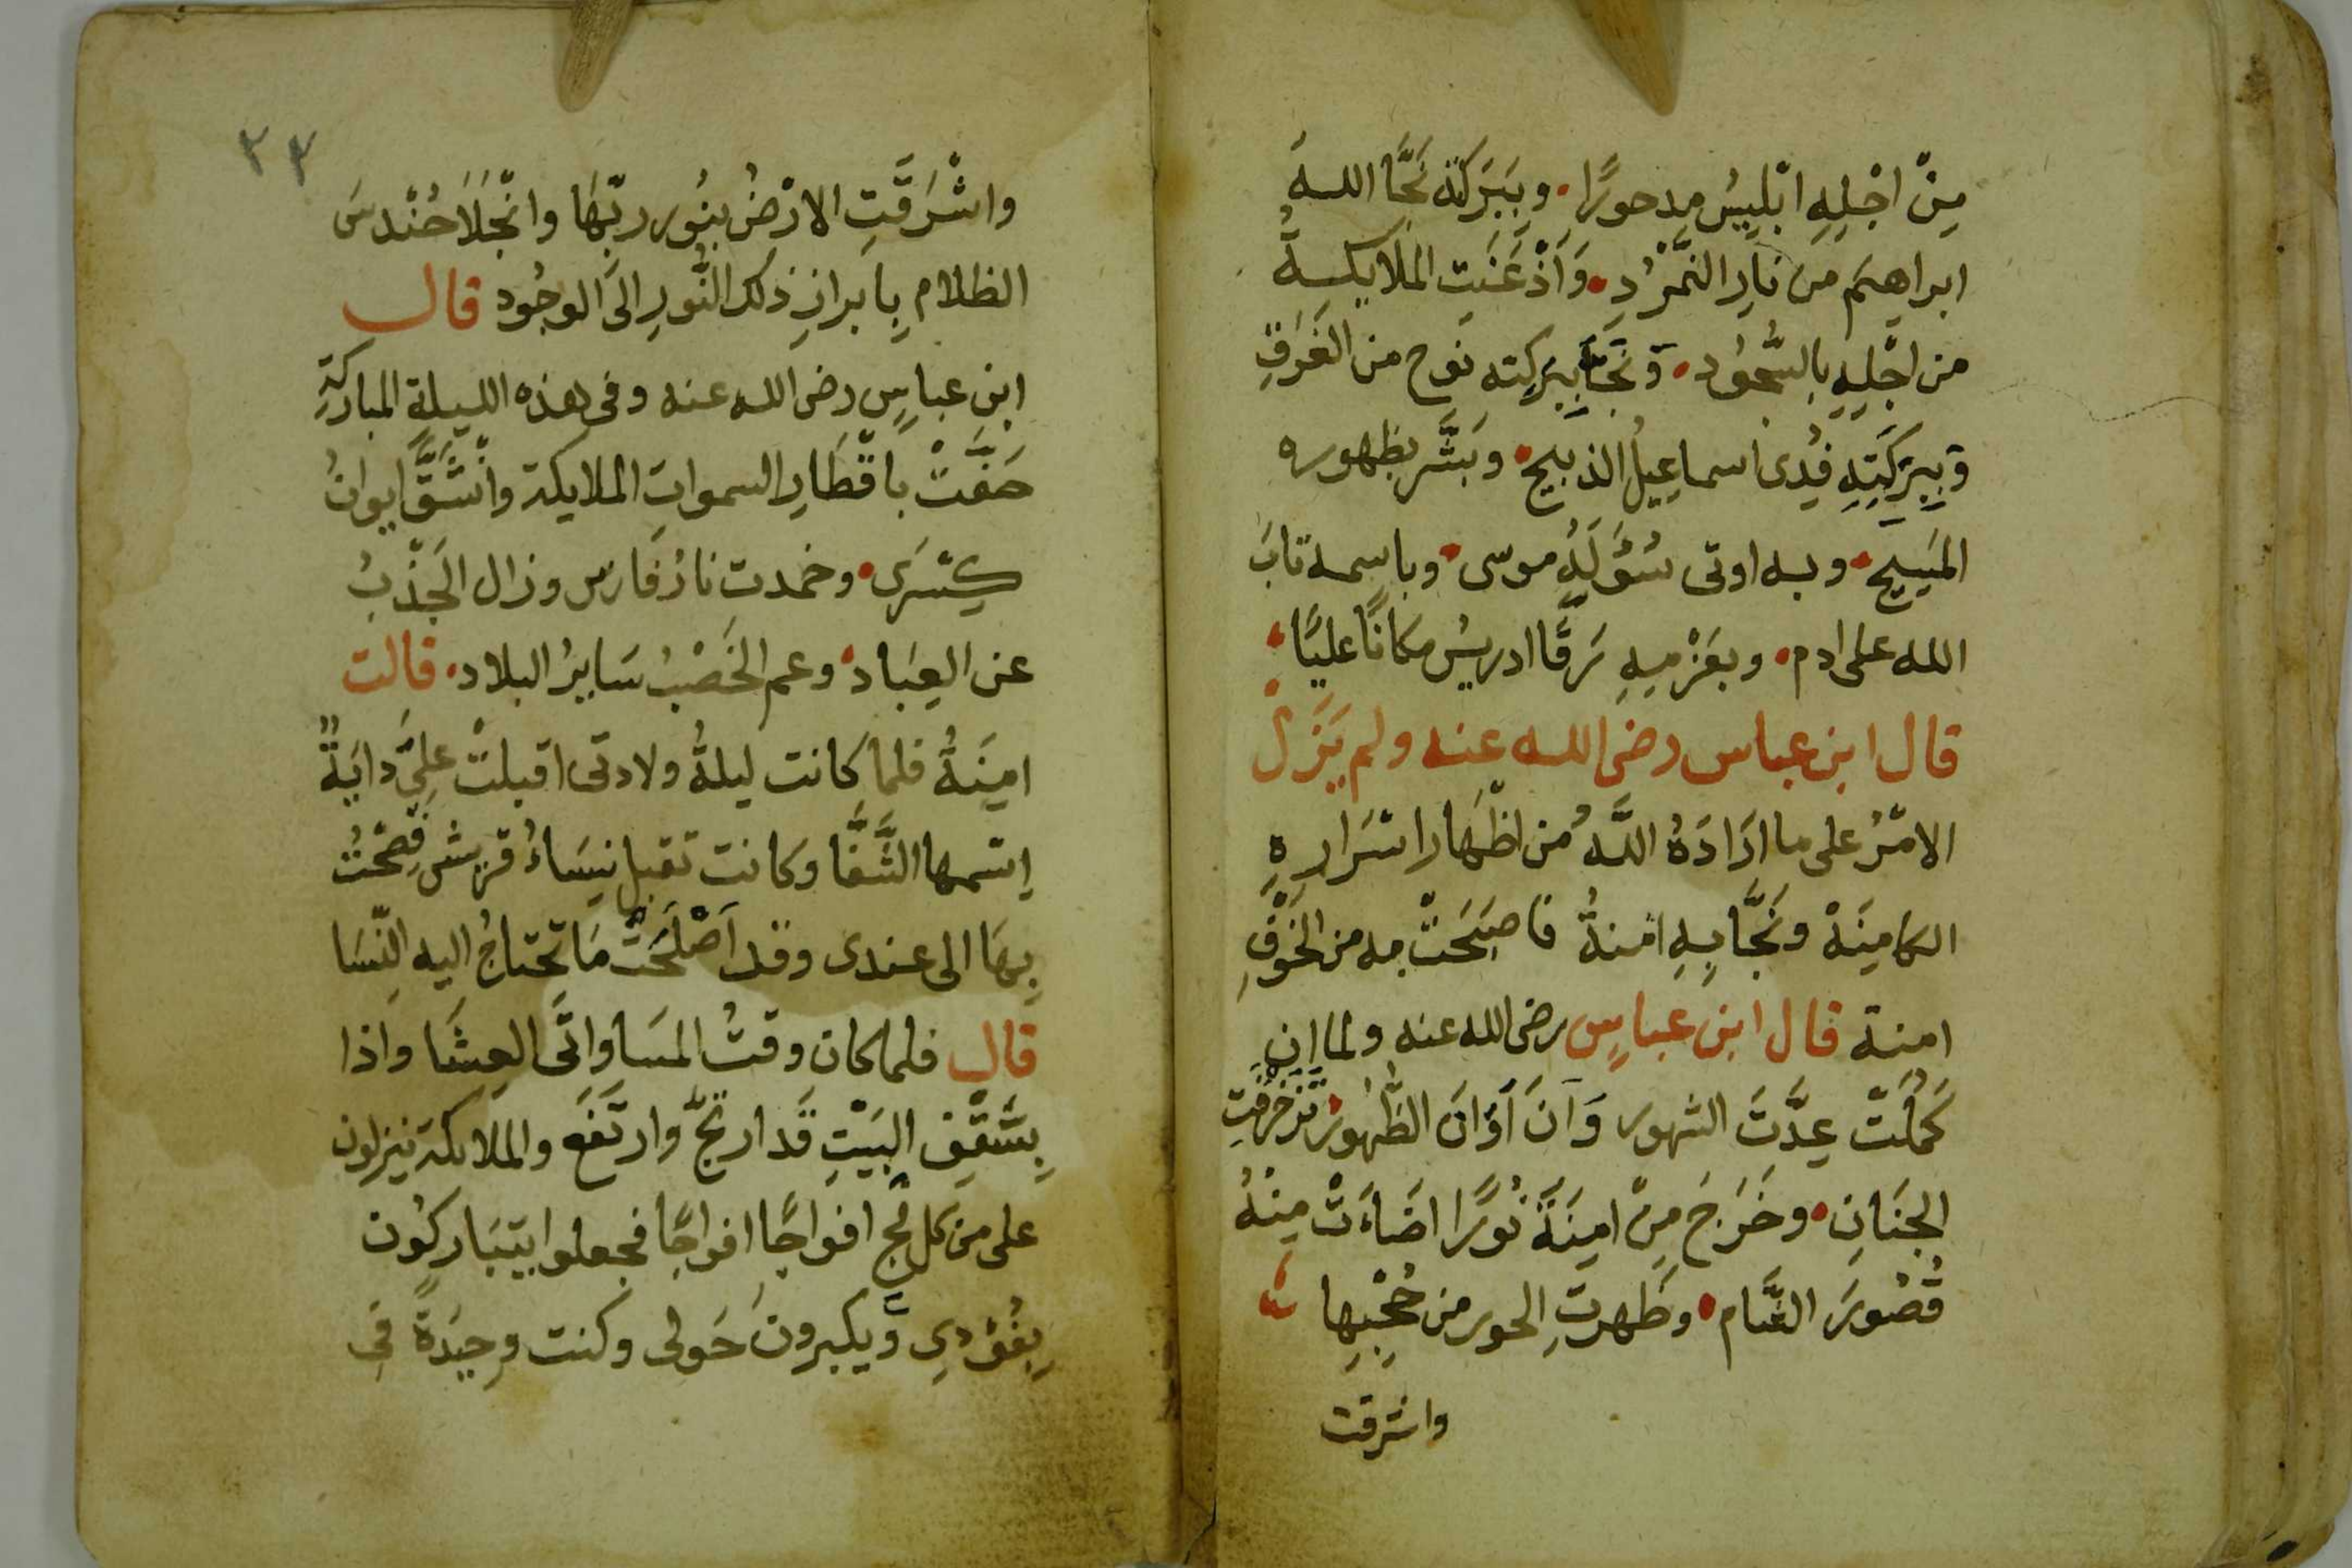 مِنْ اجْلِهِ ابْلِيسُ مدحورًا. وبِبَرَكته نَجَّا اللهُ
ابراهيمَ من نارِ النمْرُدِ. وَاَذْعَنَتِ الملايكةُ
من اجْلِهِ بالسُّجُود. وَنَجَّا بِبَركته نوح من الغَرَقِ
وَبِبَركَتِهِ فُدِى اسماعيلُ الذبيح. وبَشَّر بظهوره
المَسِيح. وبه اوتى سُؤْلَهُ موسى. وباسمه تابَ
الله على ادم. وبعَزْمِهِ رَقَّا ادريسُ مكانًا عليًا.
قال ابن عباس رضى الله عنه ولم يَزَلْ
الامْرُ على ما ارَادَهُ اللَّهُ من اظْهَار اسْرَارِهِ
الكامِنَهْ ونَجَّا بِهِ امْنةُ فاصبَحَتْ به من الخَوْفِ
امنة قال ابن عباسٍ رضى الله عنه ولما ان
كَمُلَتْ عِدَّتَ الشهور وَآنَ أَوَانَ الظُّهُورْ تزخرفتِ
الجنَانِ. وخَرَجَ مِنْ امِنَةَ نُورًا اضَاءَتْ مِنْهُ
قُصُورَ الشَّام. وظَهرتِ الحور من حُجْبِها
واشرقت
٣٣
واشْرَقَتِ الارْضُ بنُور ربّهَا وانْجَلَا حُنْدسَ
الظلام بِابرازِ ذلك النُّورِ الىَ الوجُود قال
ابن عباسٍ رضى الله عنه وفى هذه الليلةِ المباركةِ
حَفَّتْ باقْطَارِ السمواتِ الملايكة وانْشَقَّ ايوانُ
كِسْرَى. وخمدت نارُ فَارس وزال الجَدْبُ
عن العِبَاد. وعم الخَصْبُ سَايرُ البلاد. قالت
امِنَةُ فلما كانت ليلةُ ولادتى اقبلتْ علىَّ دايَةً
اِسْمها الشَّفَّا وكانت تقبل نِسَاءُ قريش فصْحْتُ
بِهَا الى عندى وقد اَصْلَحَتْ مَا تحْتاجُ اليه النّسَا
قال فلما كان وقتُ المسَا واتَى العِشَا واذا
بِسَّقْفِ البَيْتِ قَد ارتجَّ وارتَفَع والملايكة ينزلون
على من كل فَجٍ افواجًا افواجًا فجعلوا يتبَاركُون
بِفؤدى وَيكبرونَ حَولى وكنت وحِيَدةً فى